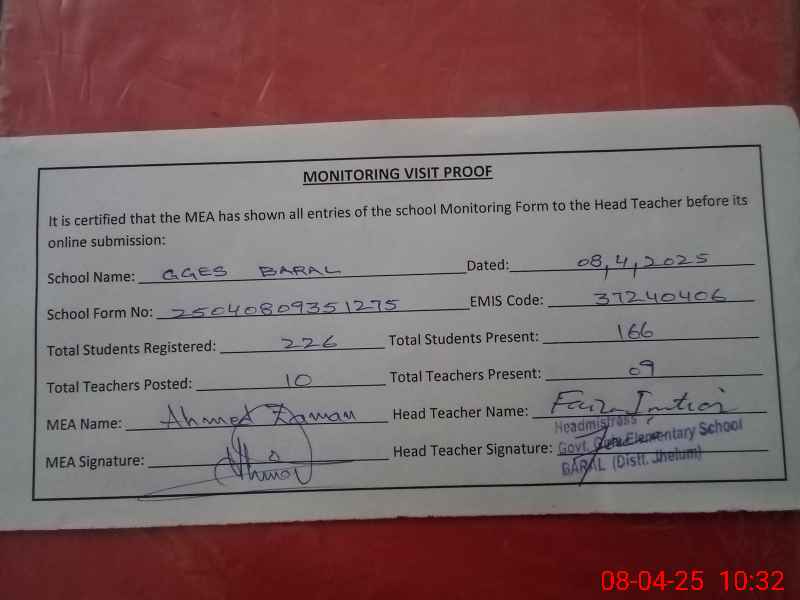 MONITORING VISIT PROOF
It is certified that the MEA has shown all entries of the school Monitoring Form to the Head Teacher before its
online submission:
School Name: GGES BARAL Dated: 08,4,2025
School Form No: 25040809351275 EMIS Code: 37240406
Total Students Registered: 226 Total Students Present: 166
Total Teachers Posted: 10 Total Teachers Present: 09
MEA Name: Ahmed Zaman Head Teacher Name: Faiza Imtiaz
Headmistress
MEA Signature: Head Teacher Signature: Govt. Elementary School
BARAL (Distt. Jhelum)
08-04-25 10:32